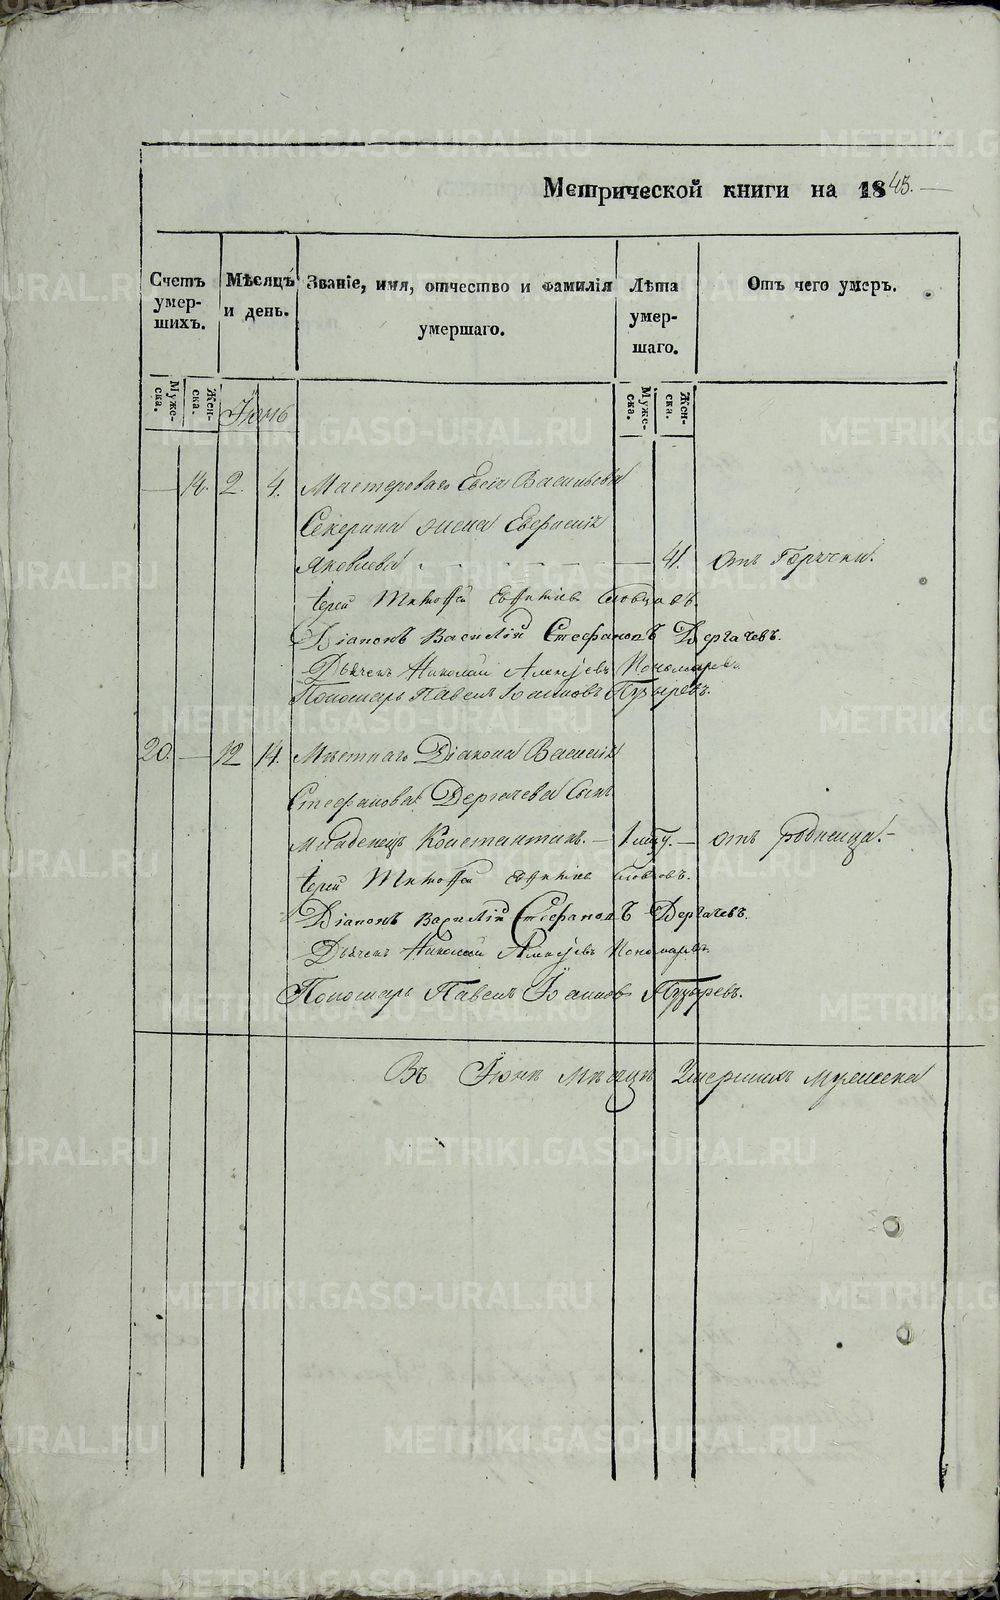 Метрической книги на 1845.
Счетъ умер-шихъ.
Мѣсяцъ и день.
Званіе, имя, отчество и фамилія умершаго.
Лѣта умер-шаго.
Отъ чего умеръ.
Муже-ска.
Жен-ска.
Муже-ска.
Жен-ска.
Іюнь
— 14. 2. 4. Мастероваго Евсѣя Васильева
Секерина жена Евфросинія
Яковлева — 41. отъ Горячки.
Іерей Тимоѳей Словцовъ.
Діаконъ Василій Стефановъ Дергачевъ.
Дьячекъ Николай Алексѣевъ Пономаревъ.
Пономарь Павелъ Іоанновъ Пузыревъ.
20. — 12 14. Мѣстнаго Діакона Василія
Стефанова Дергачева Сынъ
младенецъ Константинъ. — 1 — отъ родимца. —
Іерей Тимоѳей Словцовъ.
Діаконъ Василій Стефановъ Дергачевъ.
Дьячекъ Николай Алексѣевъ Пономаревъ.
Пономарь Павелъ Іоанновъ Пузыревъ.
Въ Іюнѣ мѣсяцѣ Умершихъ мужеска
METRIKI.GASO-URAL.RU